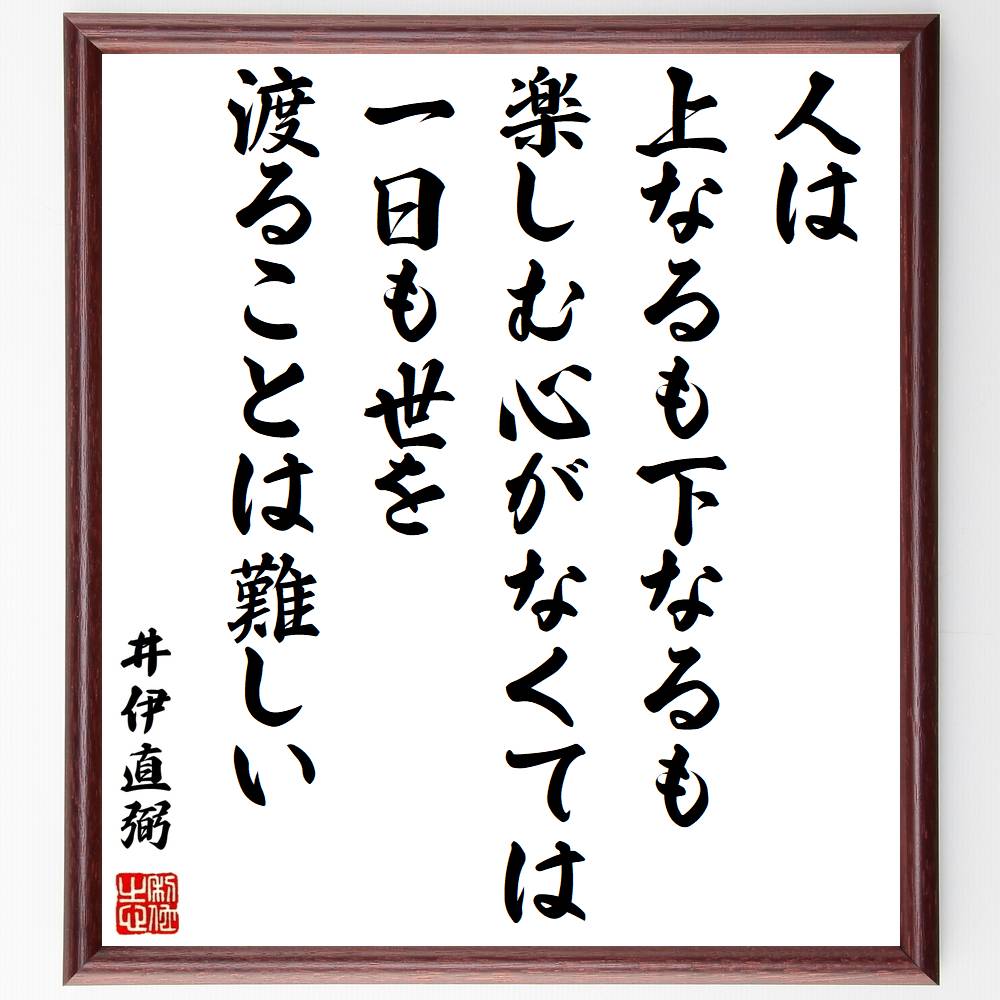 人は
上なるも下なるも
楽しむ心がなくては
一日も世を
渡ることは難しい
井伊直弼